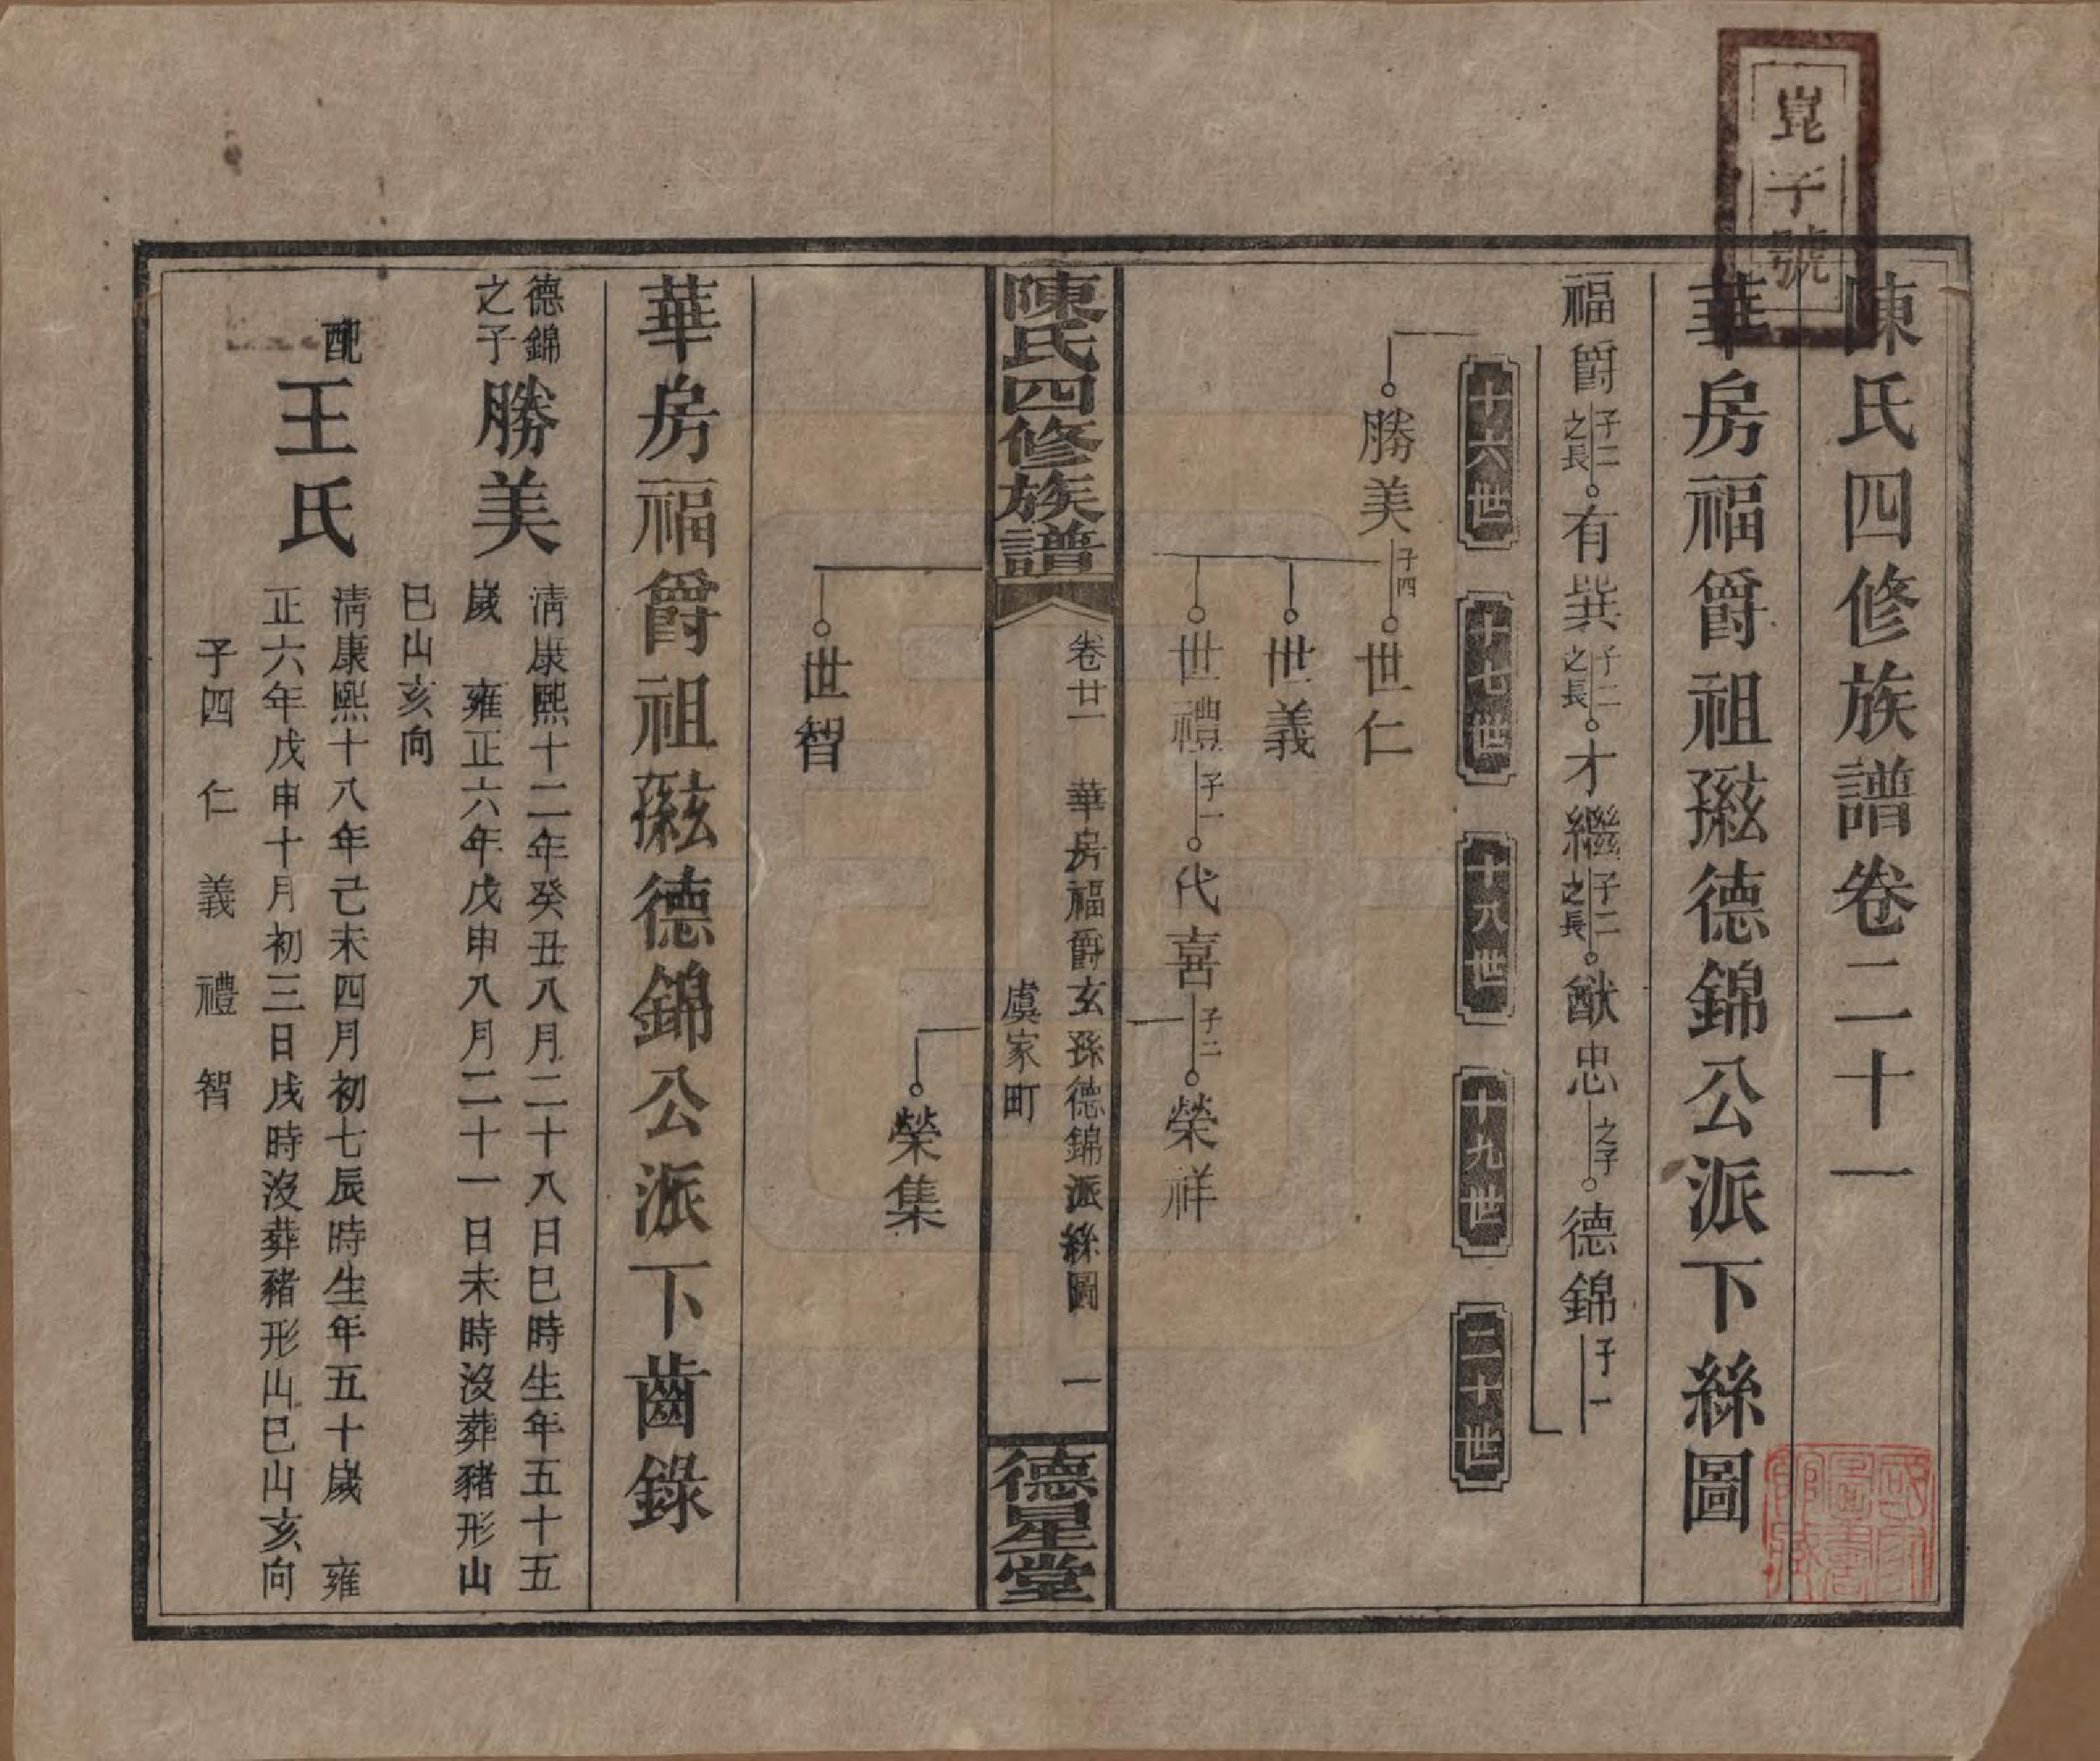 崑子號
陳氏四修族譜卷二十一
華房福爵祖𤣥孫德錦公派下絲圖
福爵子二之長有㢲子二之長才繼子二之長猷忠之子德錦子一
十六世 十七世 十八世 十九世 二十世
勝美子四世仁
世義
世禮子一代喜子二榮祥
陳氏四修族譜 卷廿一 華房福爵玄孫德錦派絲圖 一 虞家町 德星堂
榮集
世智
華房福爵祖𤣥孫德錦公派下齒錄
德錦之子 勝美 清康熙十二年癸丑八月二十八日巳時生年五十五
歲 雍正六年戊申八月二十一日未時沒葬豬形山
巳山亥向
配 王氏 清康熙十八年己未四月初七辰時生年五十歲 雍
正六年戊申十月初三日戌時沒葬豬形山巳山亥向
子四 仁 義 禮 智
國家圖書館藏